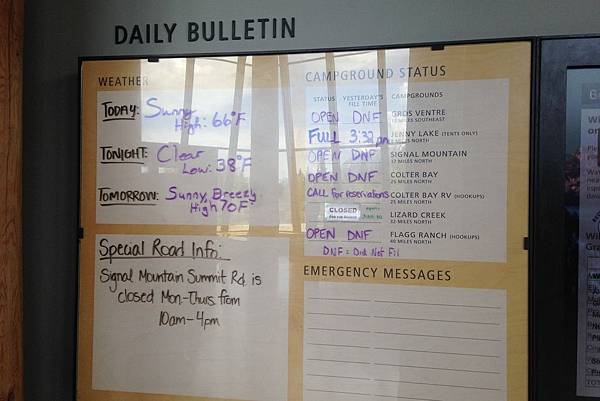 DAILY BULLETIN
WEATHER
TODAY: Sunny
High: 66°F
TONIGHT: Clear
Low: 38°F
TOMORROW: Sunny, Breezy
High 70F
Special Road Info:
Signal Mountain Summit Rd. is
closed Mon-Thurs from
10am-4pm
CAMPGROUND STATUS
STATUS YESTERDAY'S FILL TIME CAMPGROUNDS
OPEN DNF GROS VENTRE
SOUTHEAST
FULL 3:32pm JENNY LAKE (TENTS ONLY)
MILES NORTH
OPEN DNF SIGNAL MOUNTAIN
MILES NORTH
OPEN DNF COLTER BAY
25 MILES NORTH
CALL for reservations COLTER BAY RV (HOOKUPS)
25 MILES NORTH
CLOSED LIZARD CREEK
FOR THE SEASON
32 MILES NORTH
OPEN DNF FLAGG RANCH (HOOKUPS)
40 MILES NORTH
DNF = Did Not Fill
EMERGENCY MESSAGES